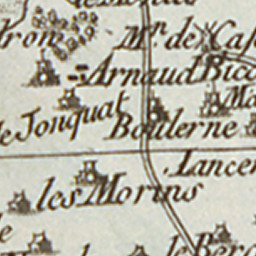 Mr. de Cas
Arnaud Bico
le Jonquat
Boulerne
Ma
Lancer
les Morins
le Berg